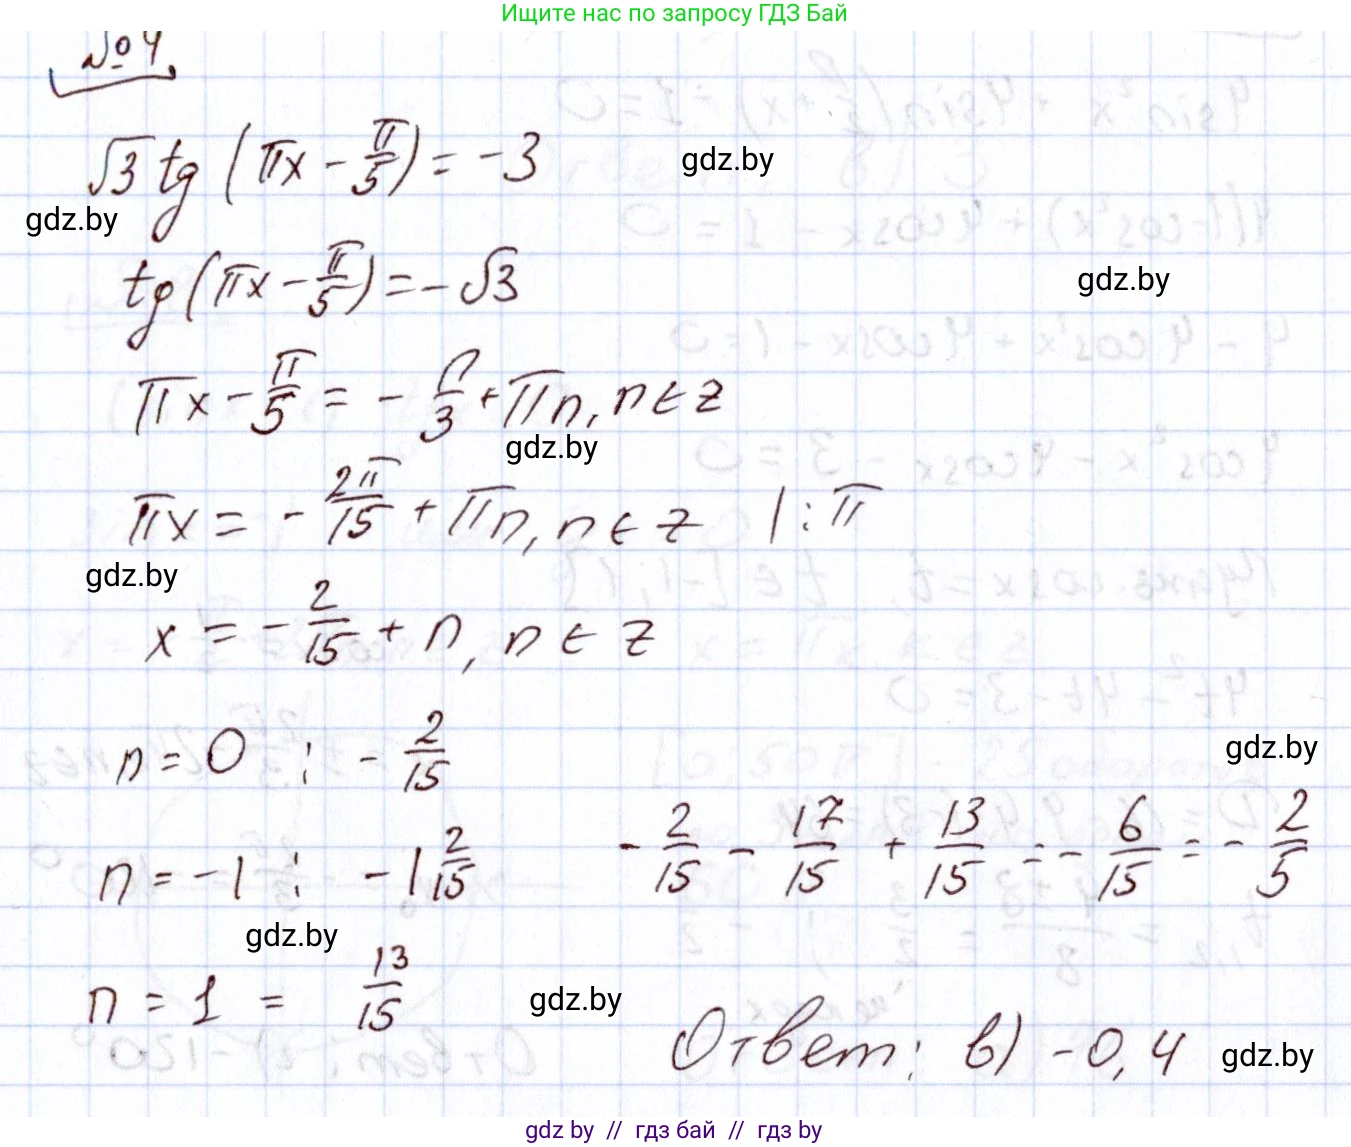 Ищите нас по запросу ГДЗ Бай
№4
√3 tg (πx - π/5) = -3
gdz.by
gdz.by
tg (πx - π/5) = -√3
gdz.by
πx - π/5 = - π/3 + πn, n ∈ z
gdz.by
πx = - 2π/15 + πn, n ∈ z | : π
gdz.by
x = - 2/15 + n, n ∈ z
n = 0 ; - 2/15
gdz.by
n = -1 ; -1 2/15
- 2/15 - 17/15 + 13/15 = - 6/15 = - 2/5
gdz.by
n = 1 = 13/15
gdz.by
Ответ: в) -0,4
gdz.by
gdz.by // гдз бай // gdz.by